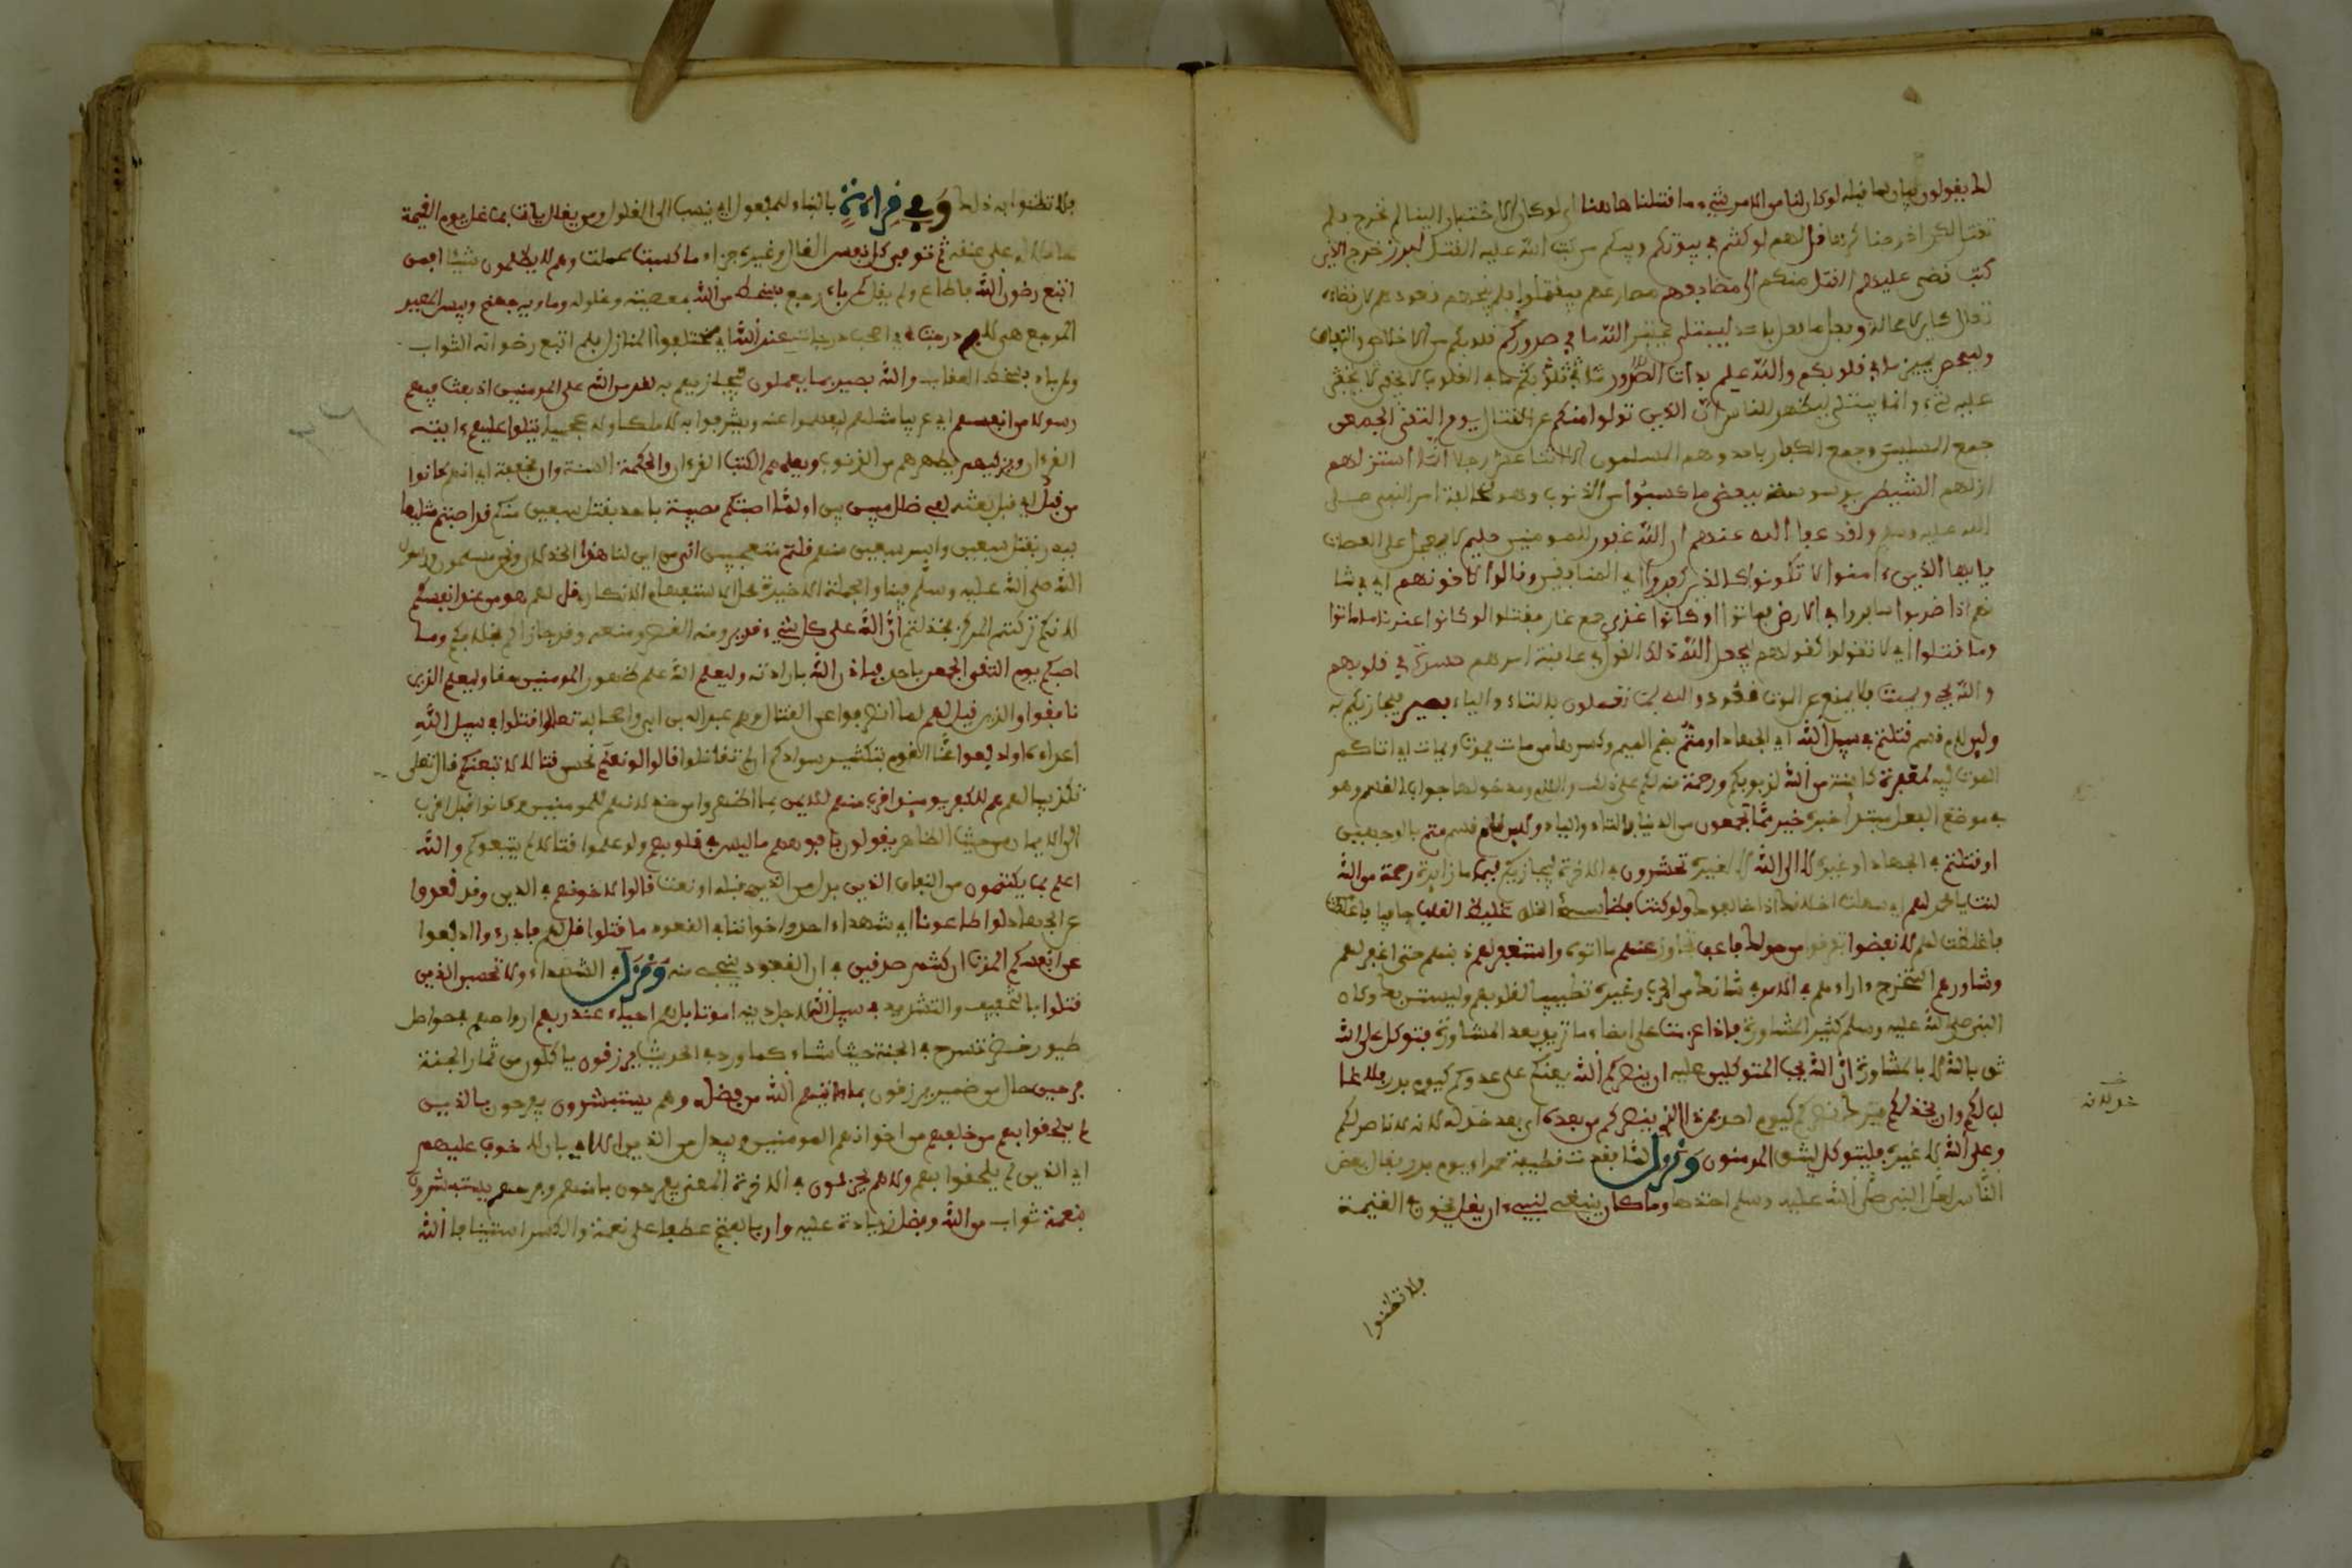 لك يقولون بيان لما قبله لو كان لنا من الامر شيء ما قتلنا هاهنا اي لو كان الاختيار الينا لم نخرج فلم
نقتل لكن اخرجنا كرها قل لهم لو كنتم في بيوتكم وفيكم من كتب الله عليه القتل لبرز خرج الذين
كتب قضي عليهم القتل منكم الى مضاجعهم مصارعهم فيقتلوا ولم ينجهم قعودهم لان قضاءه
تعالى كاين لا محالة وفعل ما فعل باحد ليبتلي يختبر الله ما في صدوركم قلوبكم من الاخلاص والنفاق
وليمحص يميز ما في قلوبكم والله عليم بذات الصدور بما في القلوب لا يخفى
عليه شيء وانما يبتلي ليظهر للناس ان الذين تولوا منكم عن القتال يوم التقى الجمعن
جمع المسلمين وجمع الكفار باحد وهم المسلمون الا اثنا عشر رجلا انما استزلهم
ازلهم الشيطن بوسوسته ببعض ما كسبوا من الذنوب وهو مخالفة امر النبي صلى
الله عليه وسلم ولقد عفا الله عنهم ان الله غفور للمومنين حليم لا يعجل على العصاة
يايها الذين ءامنوا لا تكونوا كالذين كفروا اي المنافقين وقالوا لاخونهم اي في شا
نهم اذا ضربوا سافروا في الارض فماتوا او كانوا غزى جمع غاز فقتلوا لو كانوا عندنا ما ماتوا
وما قتلوا اي لا تقولوا كقولهم ليجعل الله ذلك القول في عاقبة امرهم حسرة في قلوبهم
والله يحي ويميت فلا يمنع عن الموت قعود والله بما تعملون بالتاء والياء بصير فيجازيكم به
ولين لام قسم قتلتم في سبيل الله اي الجهاد او متم بضم الميم وكسرها من مات يموت ويمات اي اتاكم
الموت فيه لمغفرة كاينة من الله لذنوبكم ورحمة منه لكم على ذلك واللام ومدخولها جواب القسم وهو
في موضع الفعل مبتدا خبره خير مما تجمعون من الدنيا بالتاء والياء ولين لام قسم متم بالوجهين
او قتلتم في الجهاد او غيره لا الى الله لا الى غيره تحشرون في الاخرة فيجازيكم فبما ما زايدة رحمة من الله
لنت يا محمد لهم اي سهلت اخلاقك اذ خالفوك ولو كنت فظا سيء الخلق غليظ القلب جافيا فاغلظت
فاغلظت لهم لانفضوا تفرقوا من حولك فاعف تجاوز عنهم ما اتوه واستغفر لهم ذنبهم حتى اغفر لهم
وشاورهم استخرج ءاراءهم في الامر اي شانك من الحرب وغيره تطييبا لقلوبهم وليستن بك وكان
النبي صلى الله عليه وسلم كثير المشاورة فاذا عزمت على امضاء ما تريد بعد المشاورة فتوكل على الله
ثق بالله لا بالمشاورة ان الله يحب المتوكلين عليه ان ينصركم الله يعنكم على عدوكم كيوم بدر فلا غا
لب لكم وان يخذلكم يترك نصركم كيوم احد فمن ذا الذي ينصركم من بعده اي بعد خذلانه لا ناصر لكم
وعلى الله لا غيره فليتوكل ليثق المومنون ونزل لما فقدت قطيفة حمراء يوم بدر فقال بعض
الناس لعل النبي صلى الله عليه وسلم اخذها وما كان ينبغي لنبيء ان يغل يخون في الغنيمة
فلا تظنوا
خذلانه
فلا تظنوا به ذلك وفي قراءة بالبناء للمفعول اي ينسب الى الغلول ومن يغلل يات بما غل يوم القيمة
حاملا له على عنقه ثم توفى كل نفس الغال وغيره جزاء ما كسبت عملت وهم لا يظلمون شيئا افمن
اتبع رضون الله فاطاع ولم يغل كمن باء رجع بسخط من الله بمعصيته وغلوله وماويه جهنم وبيس المصير
المرجع هي لا هم درجت اي اصحاب درجات عند الله اي مختلفوا المنازل فلمن اتبع رضوانه الثواب
ولمن باء بسخطه العقاب والله بصير بما يعملون فيجازيهم به لقد من الله على المومنين اذ بعث فيهم
رسولا من انفسهم اي عربيا مثلهم ليفهموا عنه ويشرفوا به لا ملكا ولا عجميا يتلوا عليهم ءايته
القرءان ويزكيهم يطهرهم من الذنوب ويعلمهم الكتب القرءان والحكمة السنة وان مخففة اي انهم كانوا
من قبل اي قبل بعثه لفي ضلل مبين بين اولما اصبتكم مصيبة باحد بقتل سبعين منكم قد اصبتم مثليها
ببدر بقتل سبعين واسر سبعين منهم قلتم متعجبين انى من اين لنا هذا الخذلان ونحن مسلمون ورسول
الله صلى الله عليه وسلم فينا والجملة الاخيرة محل الاستفهام الانكاري قل لهم هو من عند انفسكم
لانكم تركتم المركز فخذلتم ان الله على كل شيء قدير ومنه النصر ومنعه وقد جازاكم بخلافكم وما
اصبكم يوم التقى الجمعن باحد فباذن الله بارادته وليعلم الله علم ظهور المومنين حقا وليعلم الذين
نافقوا والذين قيل لهم لما انصرفوا عن القتال وهم عبد الله بن ابي واصحابه تعالوا قتلوا في سبيل الله
اعداءه او ادفعوا عنا القوم بتكثير سوادكم ان لم تقاتلوا قالوا لو نعلم نحسن قتالا لاتبعنكم قال تعالى
تكذيبا لهم هم للكفر يوميذ اقرب منهم للايمن بما اظهروا من خذلانهم للمومنين وكانوا قبل اقرب
الى الايمان من حيث الظاهر يقولون بافوههم ما ليس في قلوبهم ولو علموا قتالا لم يتبعوكم والله
اعلم بما يكتمون من النفاق الذين بدل من الذين قبله او نعت قالوا لاخونهم في الدين وقد قعدوا
عن الجهاد لو اطاعونا اي شهداء احد او اخواننا في القعود ما قتلوا قل لهم فادرءوا ادفعوا
عن انفسكم الموت ان كنتم صدقين في ان القعود ينجي منه ونزل في الشهداء ولا تحسبن الذين
قتلوا بالتخفيف والتشديد في سبيل الله لاجل دينه اموتا بل هم احياء عند ربهم ارواحهم في حواصل
طيور خضر تسرح في الجنة حيث شاءت كما ورد في الحديث يرزقون ياكلون من ثمار الجنة
فرحين حال من ضمير يرزقون بما ءاتيهم الله من فضله وهم يستبشرون يفرحون بالذين
لم يلحقوا بهم من خلفهم من اخوانهم المومنين ويبدل من الذين الا اي بان لا خوف عليهم
اي الذين لم يلحقوا بهم ولا هم يحزنون في الاخرة المعنى يفرحون بامنهم وفرحهم يستبشرون
بنعمة ثواب من الله وفضل زيادة عليه وان بالفتح عطفا على نعمة والكسر استينافا الله